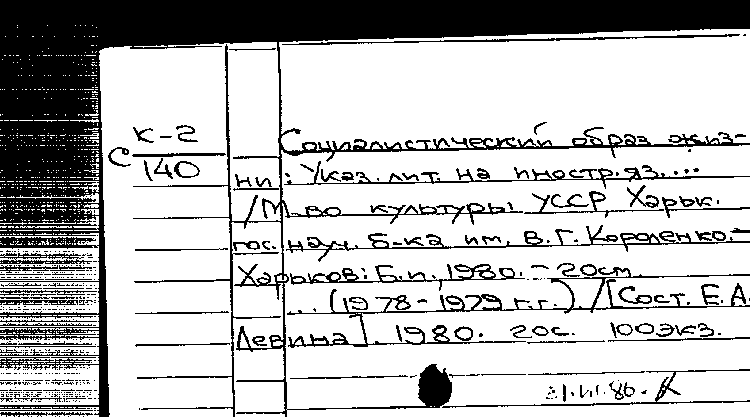 К-2
С 140
Социалистический образ жиз-
ни: Указ. лит. на иностр. яз. ...
/М-во культуры УССР, Харьк.
гос. науч. б-ка им. В. Г. Короленко.-
Харьков: Б.и., 1980. - 20 см.
... (1978-1979 г.г.). /[Сост. Е.А.
Левина]. 1980. 20с. 100экз.